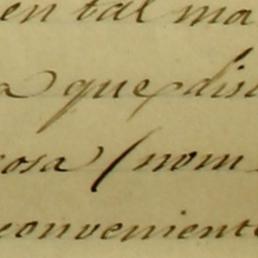 en tal ma
a que dis
cosa (nom
conveniente